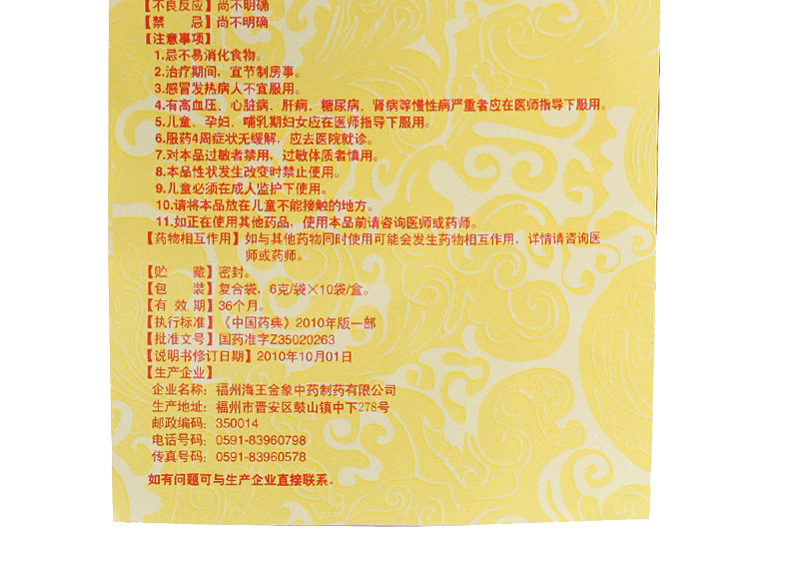 【不良反应】尚不明确
【禁 忌】尚不明确
【注意事项】
1.忌不易消化食物。
2.治疗期间，宜节制房事。
3.感冒发热病人不宜服用。
4.有高血压、心脏病、肝病、糖尿病、肾病等慢性病严重者应在医师指导下服用。
5.儿童、孕妇、哺乳期妇女应在医师指导下服用。
6.服药4周症状无缓解，应去医院就诊。
7.对本品过敏者禁用，过敏体质者慎用。
8.本品性状发生改变时禁止使用。
9.儿童必须在成人监护下使用。
10.请将本品放在儿童不能接触的地方。
11.如正在使用其他药品，使用本品前请咨询医师或药师。
【药物相互作用】如与其他药物同时使用可能会发生药物相互作用，详情请咨询医
师或药师。
【贮 藏】密封。
【包 装】复合袋，6克/袋×10袋/盒。
【有 效 期】36个月。
【执行标准】《中国药典》2010年版一部
【批准文号】国药准字Z35020263
【说明书修订日期】2010年10月01日
【生产企业】
企业名称：福州海王金象中药制药有限公司
生产地址：福州市晋安区鼓山镇中下278号
邮政编码：350014
电话号码：0591-83960798
传真号码：0591-83960578
如有问题可与生产企业直接联系。